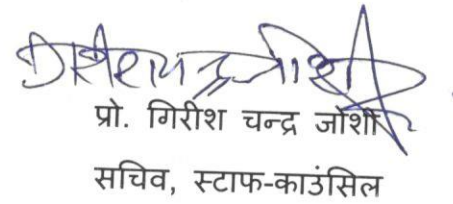 प्रो. गिरीश चन्द्र जोशी
सचिव, स्टाफ-काउंसिल